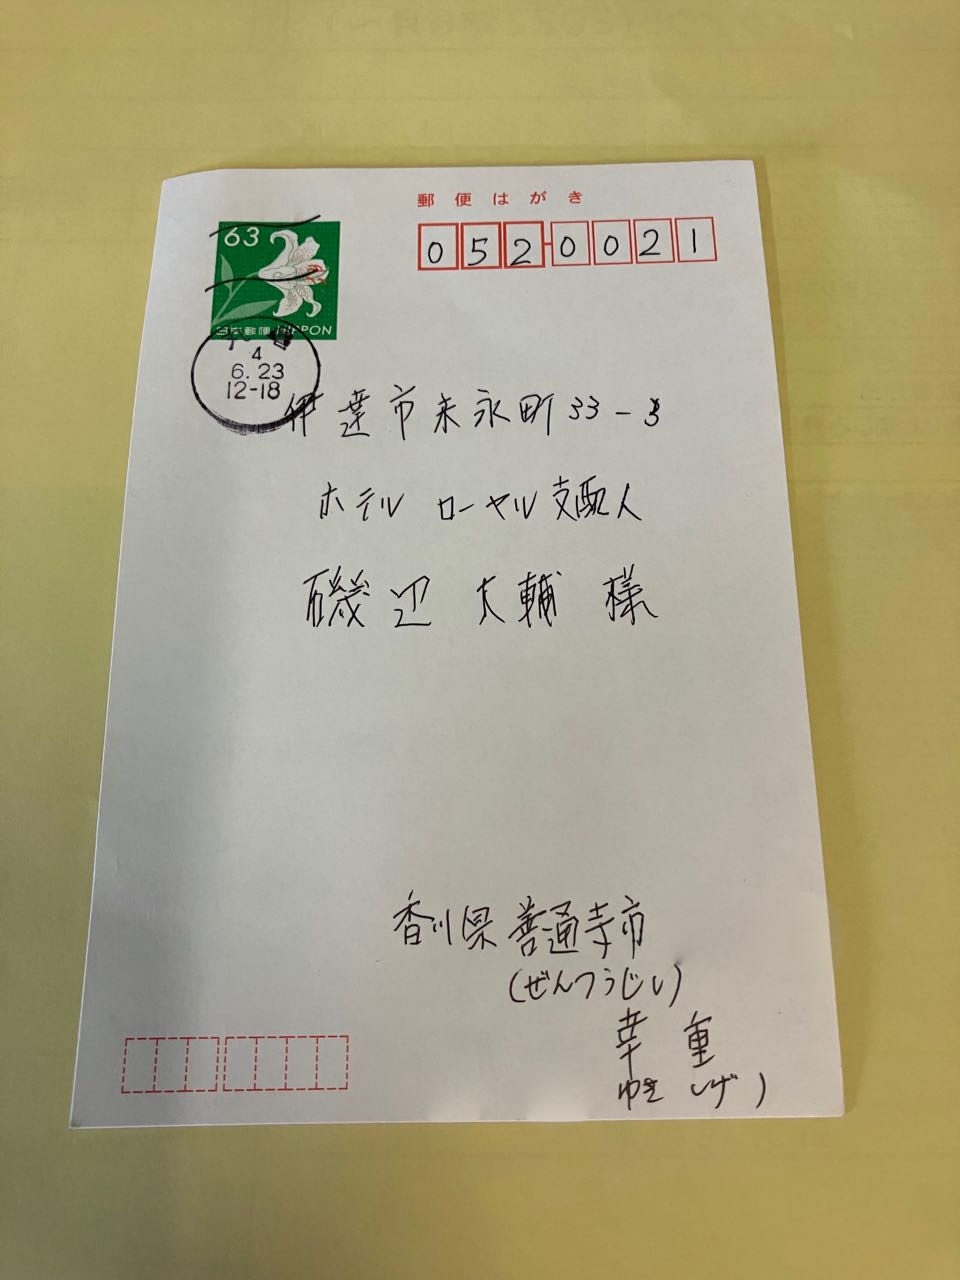 郵便はがき
0520021
63
日本郵便 NIPPON
4
6.23
12-18
伊達市末永町33-3
ホテル ローヤル支配人
磯辺 大輔 様
香川県善通寺市
(ぜんつうじし)
幸 重
ゆき しげ )